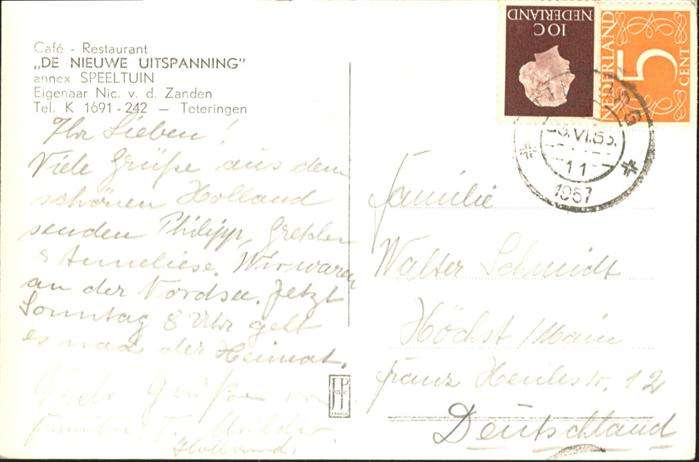 Café - Restaurant
„DE NIEUWE UITSPANNING"
annex SPEELTUIN
Eigenaar Nic. v. d. Zanden
Tel. K 1691-242 — Teteringen
Ihr Lieben!
Viele Grüße aus dem
schönen Holland
senden Philipp, Gretchen
& Anneliese. Wir waren
an der Nordsee. Jetzt
Sonntag 8 Uhr geht
es nach der Heimat.
Viele Grüße von
Familie
Holland.
10C
NEDERLAND
NEDERLAND
5
CENT
11
1957
Familie
Walter Schmidt
Höchst/Main
Franz Henlestr. 12
Deutschland
JP